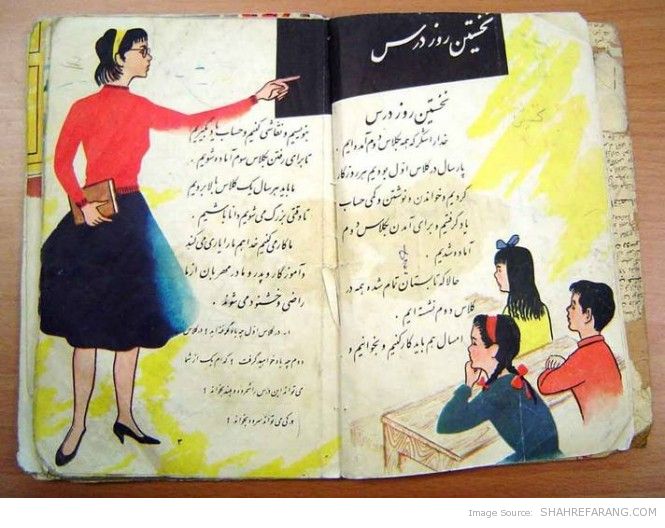 نخستین روز درس
نخستین روز درس
خدارا شکر که همه بکلاس دوم آمده ایم .
پارسال در کلاس اوّل بودیم هر روز کار
کردیم و خواندن و نوشتن و کمی حساب
یاد گرفتیم و برای آمدن بکلاس دوم
آماده شدیم .
حالا که تابستان تمام شده همه در
کلاس دوم نشسته ایم .
امسال هم باید کار کنیم و بخوانیم و
بنویسیم و نقاشی کنیم و حساب یاد بگیریم
تا برای رفتن بکلاس سوم آماده شویم .
ما باید هر سال یک کلاس بالا برویم
تا وقتی بزرگ می شویم دانا باشیم .
ما کار می کنیم خدا هم ما را یاری می کند
و آموزگار و پدر و مادر مهربان از ما
راضی و خشنود می شوند .
۱ـ در کلاس اوّل چه یاد گرفته اید ؟ در کلاس
دوم چه یاد خواهید گرفت ؟ کدام یک از شما
می تواند این درس را شمرده و بلند بخواند ؟
و کی می تواند سرود بخواند ؟
۳
Image Source: SHAHREFARANG.COM